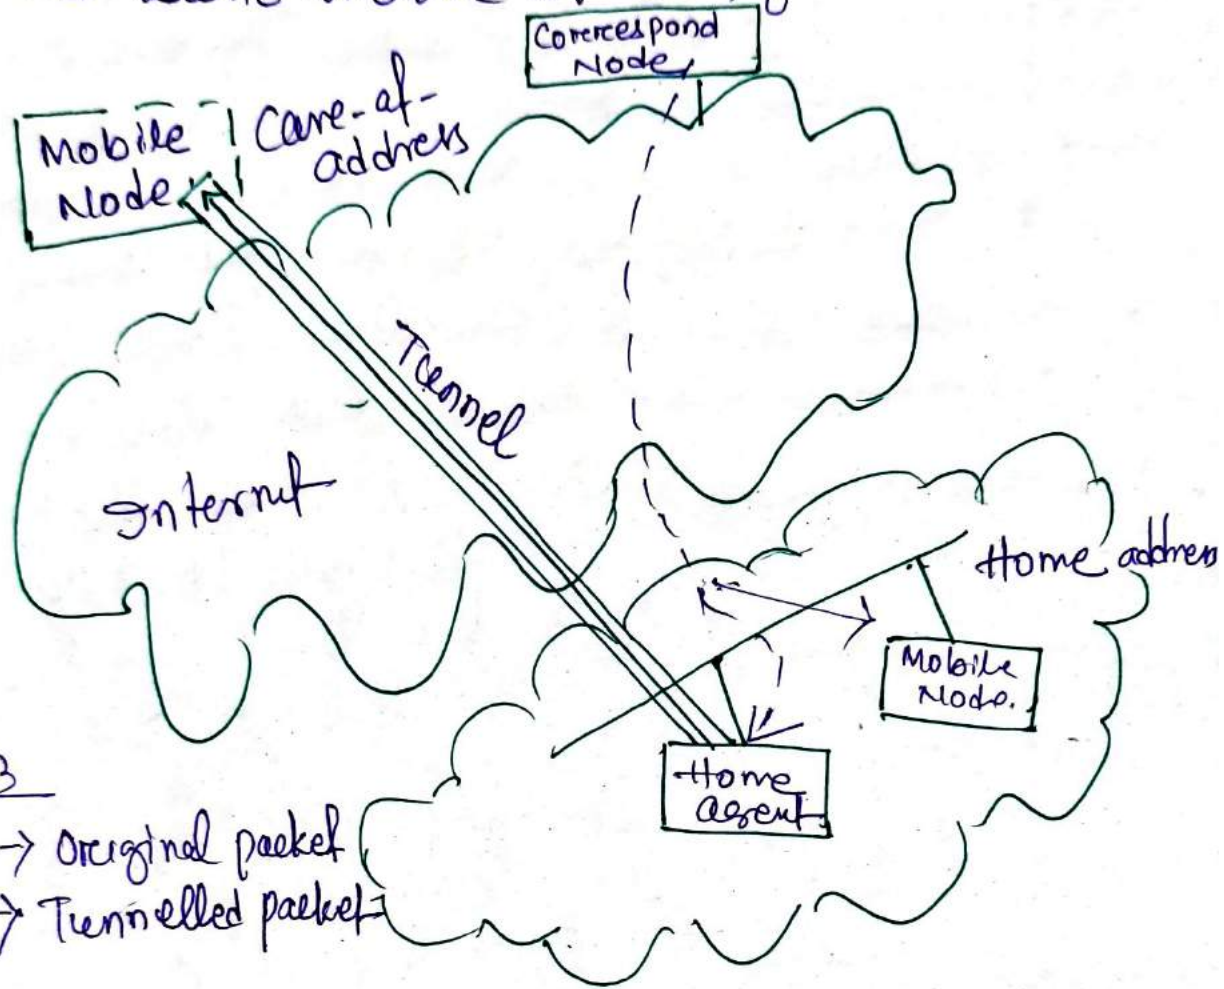 Correspond
Node
Mobile
Node
Care-of-
address
Tunnel
Internet
Home address
Mobile
Node.
Home
agent
→ Original packet
→ Tunnelled packet